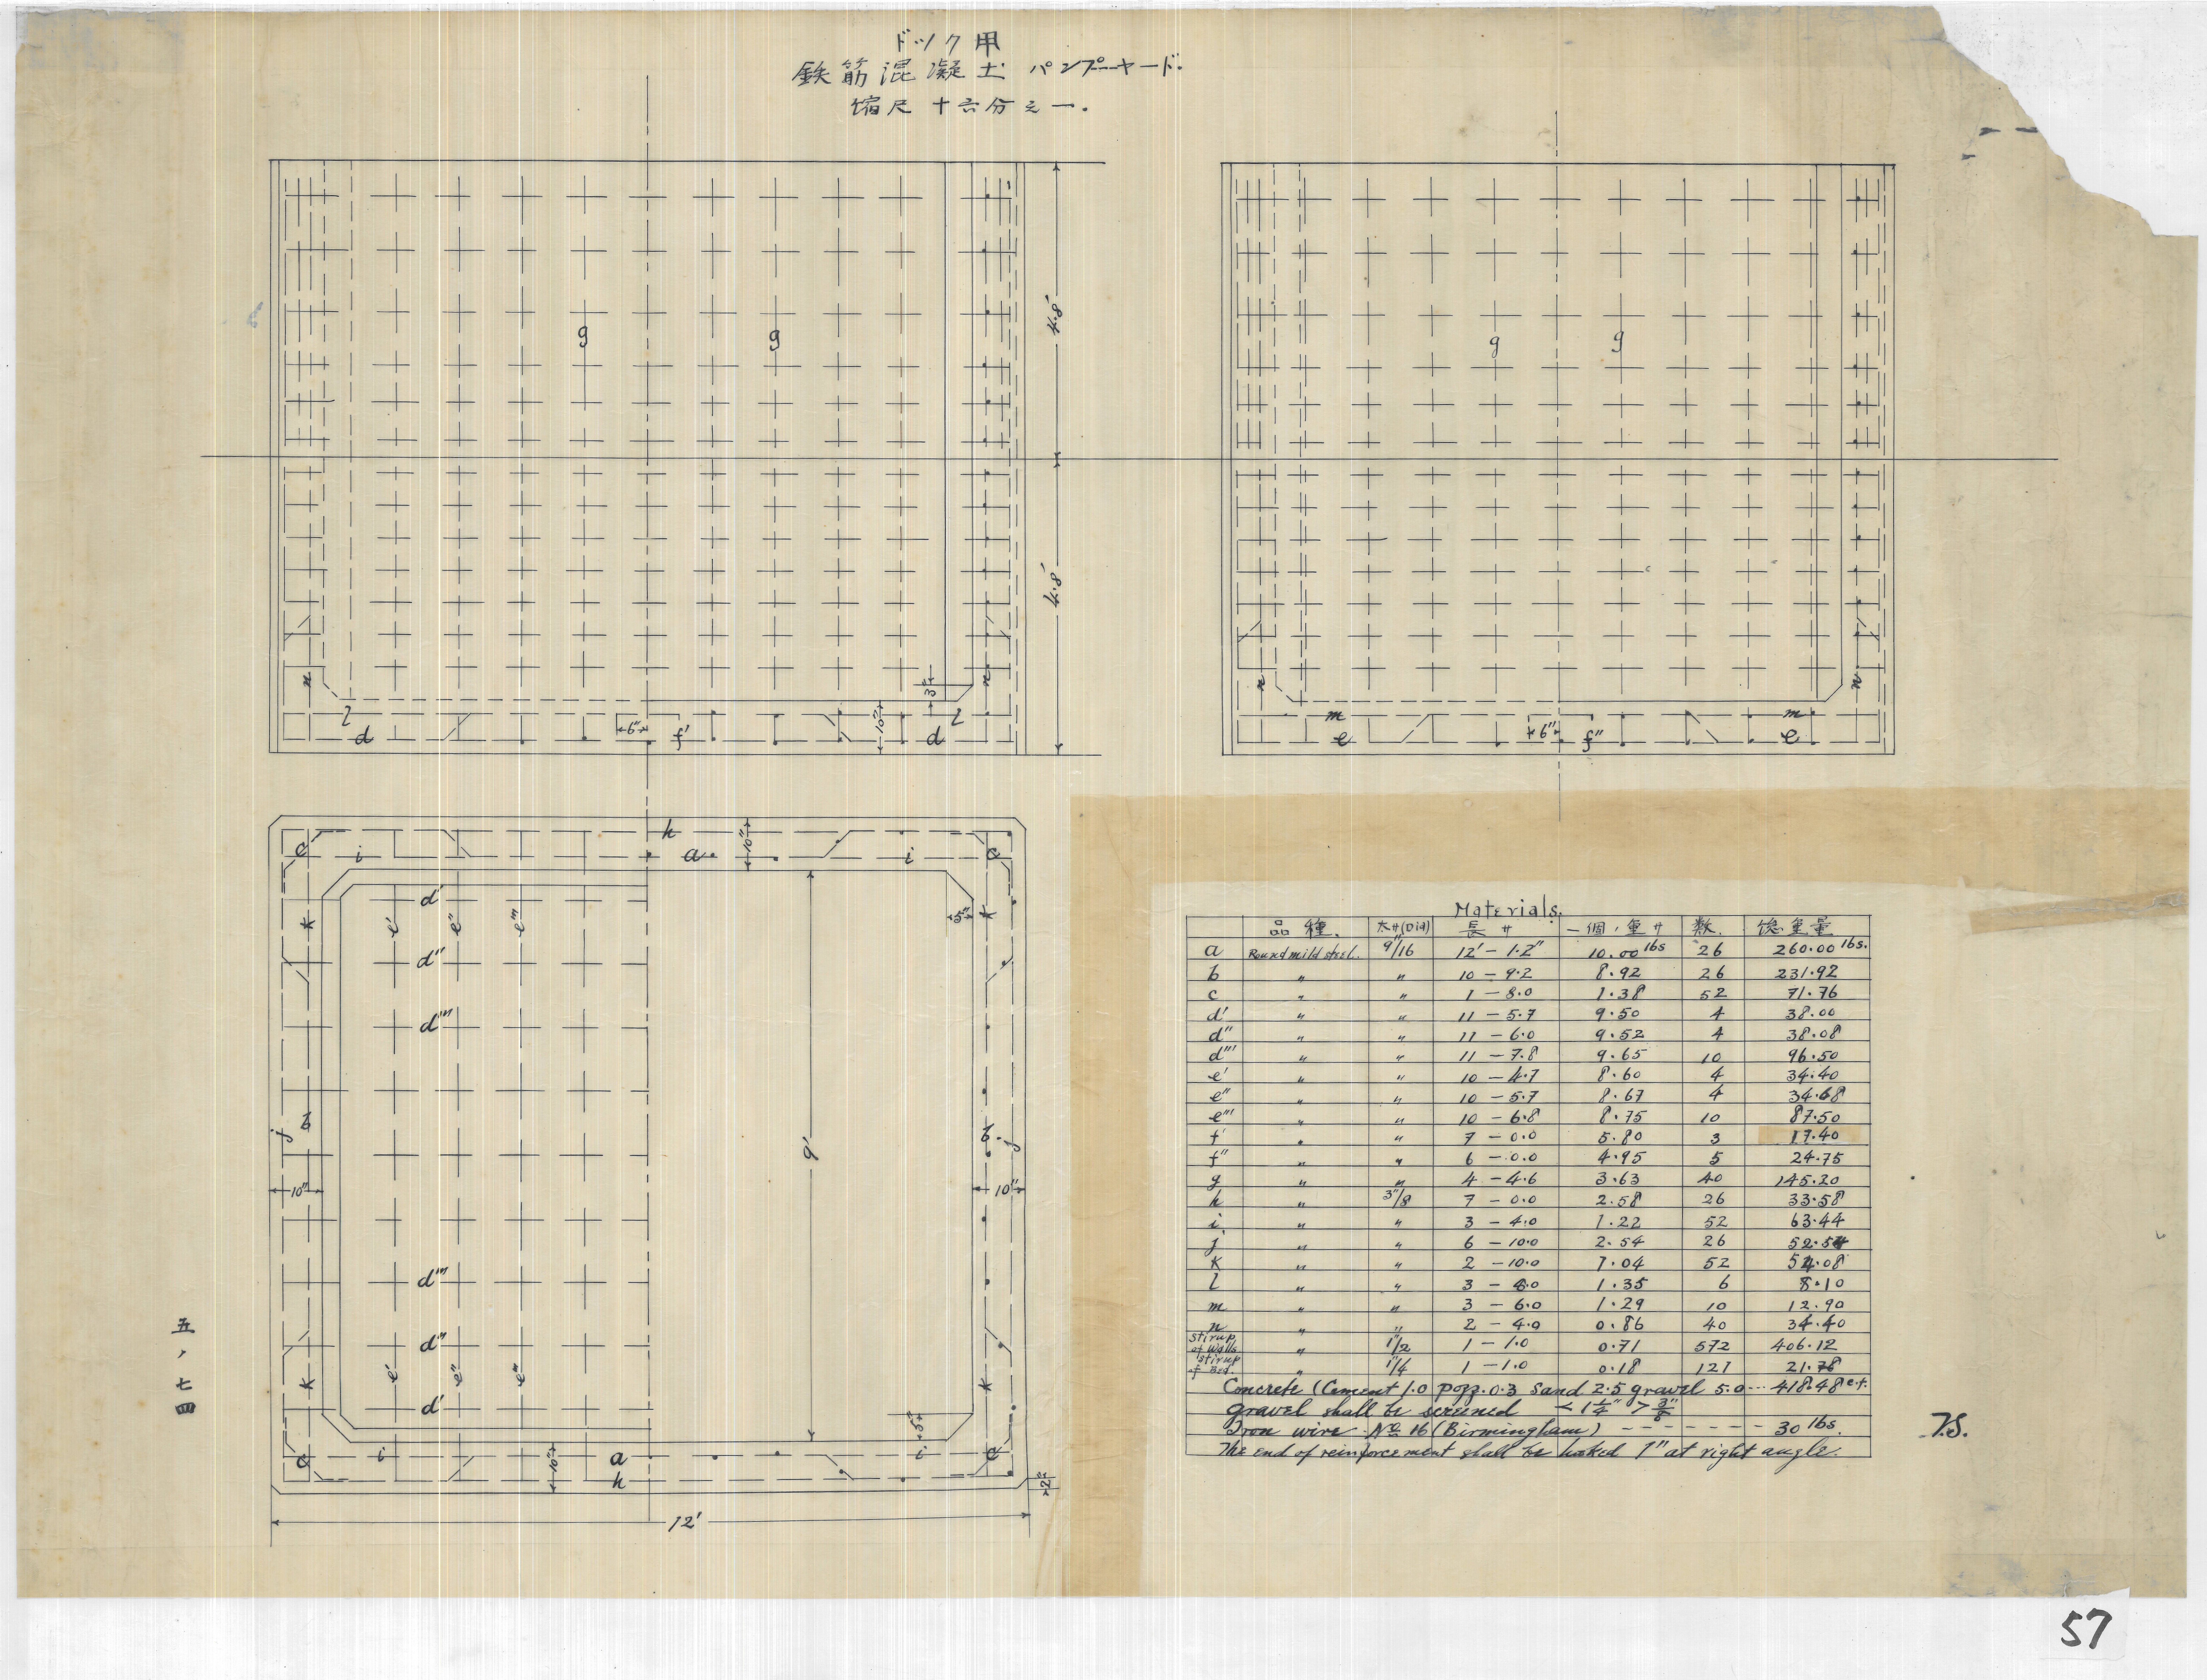 ドック用
鉄筋混凝土 パンプーヤード.
縮尺 十六分之一.
g g
4.8'
4.8'
n n
3"
l l
d 6" f' 10" d
g g
n n
m m
e 6" f" e
h
c i a 10" i c
d'
k e' e" e''' 5" k
d"
d'''
b j 9' b j
10" 10"
d'''
d"
k e' e" e''' k
d'
5"
c i 10" a i c
h
2"
12'
五、七四
Materials.
品種. 太サ(Dia) 長サ 一個ノ重サ 数. 総重量
a Round mild steel. 9"/16 12' – 1.2" 10.00 lbs 26 260.00 lbs.
b " " 10 – 9.2 8.92 26 231.92
c " " 1 – 8.0 1.38 52 71.76
d' " " 11 – 5.7 9.50 4 38.00
d" " " 11 – 6.0 9.52 4 38.08
d''' " " 11 – 7.8 9.65 10 96.50
e' " " 10 – 4.7 8.60 4 34.40
e" " " 10 – 5.7 8.67 4 34.68
e''' " " 10 – 6.8 8.75 10 87.50
f' " " 7 – 0.0 5.80 3 17.40
f" " " 6 – 0.0 4.95 5 24.75
g " " 4 – 4.6 3.63 40 145.20
h " 3"/8 7 – 0.0 2.58 26 33.58
i " " 3 – 4.0 1.22 52 63.44
j " " 6 – 10.0 2.54 26 52.54
k " " 2 – 10.0 1.04 52 54.08
l " " 3 – 8.0 1.35 6 8.10
m " " 3 – 6.0 1.29 10 12.90
n " " 2 – 4.0 0.86 40 34.40
stirup of walls " 1"/2 1 – 1.0 0.71 572 406.12
stirup of bed. " 1"/4 1 – 1.0 0.18 121 21.78
Concrete (Cement 1.0 pozz. 0.3 sand 2.5 gravel 5.0 --- 418.48 c.f.
gravel shall be screened < 1 1/4" > 3/8"
Iron wire No 16 (Birmingham) - - - - - - 30 lbs.
The end of reinforcement shall be hooked 1" at right angle.
T.S.
57